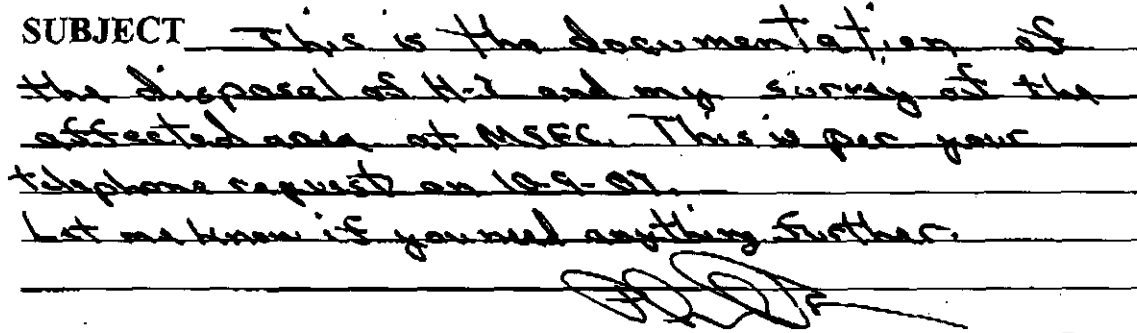 SUBJECT This is the documentation of
the disposal of H-3 and my survey of the
affected area at MSFC. This is per your
telephone request on 10-9-07.
Let me know if you need anything further.